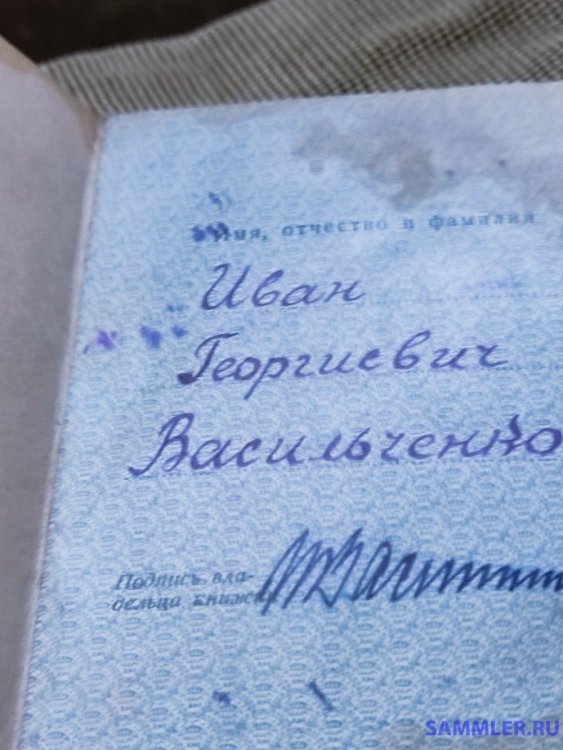 Имя, отчество и фамилия
Иван
Георгиевич
Васильченко
Подпись вла-
дельца книжк
SAMMLER.RU